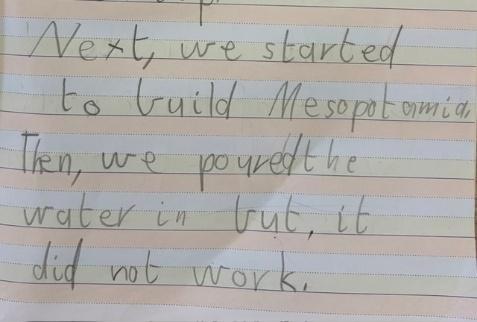 Next, we started
to build Mesopotamia.
Then, we poured the
water in but, it
did not work.